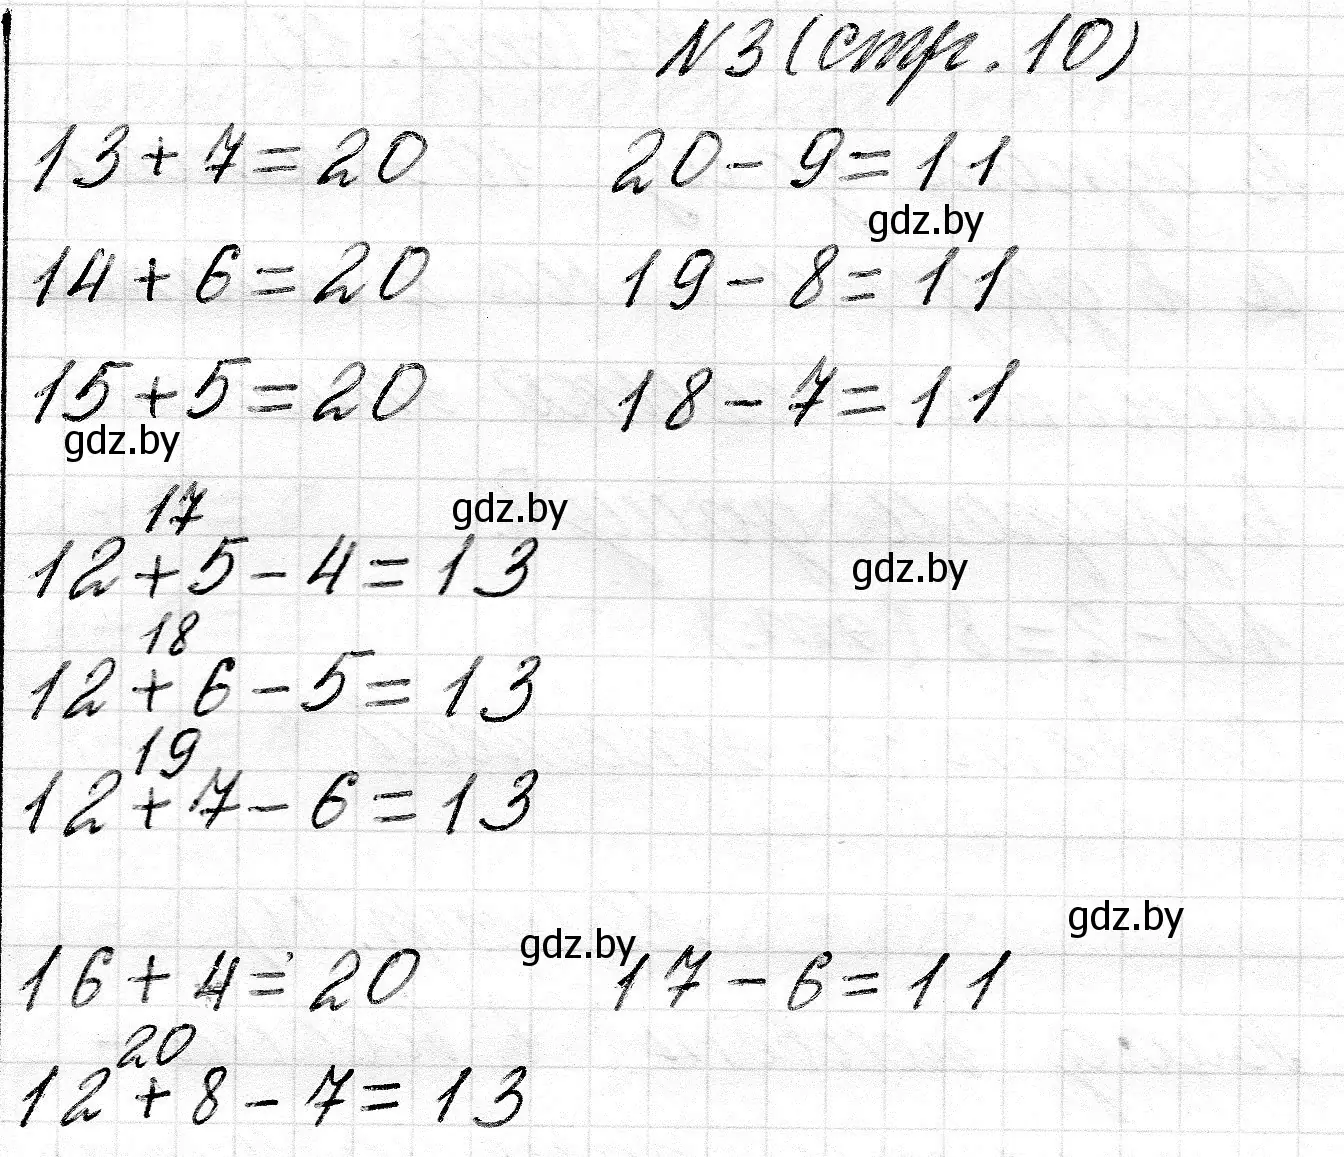 N3 (стр. 10)
13 + 7 = 20 20 - 9 = 11
gdz.by
14 + 6 = 20 19 - 8 = 11
15 + 5 = 20 18 - 7 = 11
gdz.by
17 gdz.by
12 + 5 - 4 = 13 gdz.by
18
12 + 6 - 5 = 13
19
12 + 7 - 6 = 13
gdz.by
gdz.by
16 + 4 = 20 17 - 6 = 11
20
12 + 8 - 7 = 13